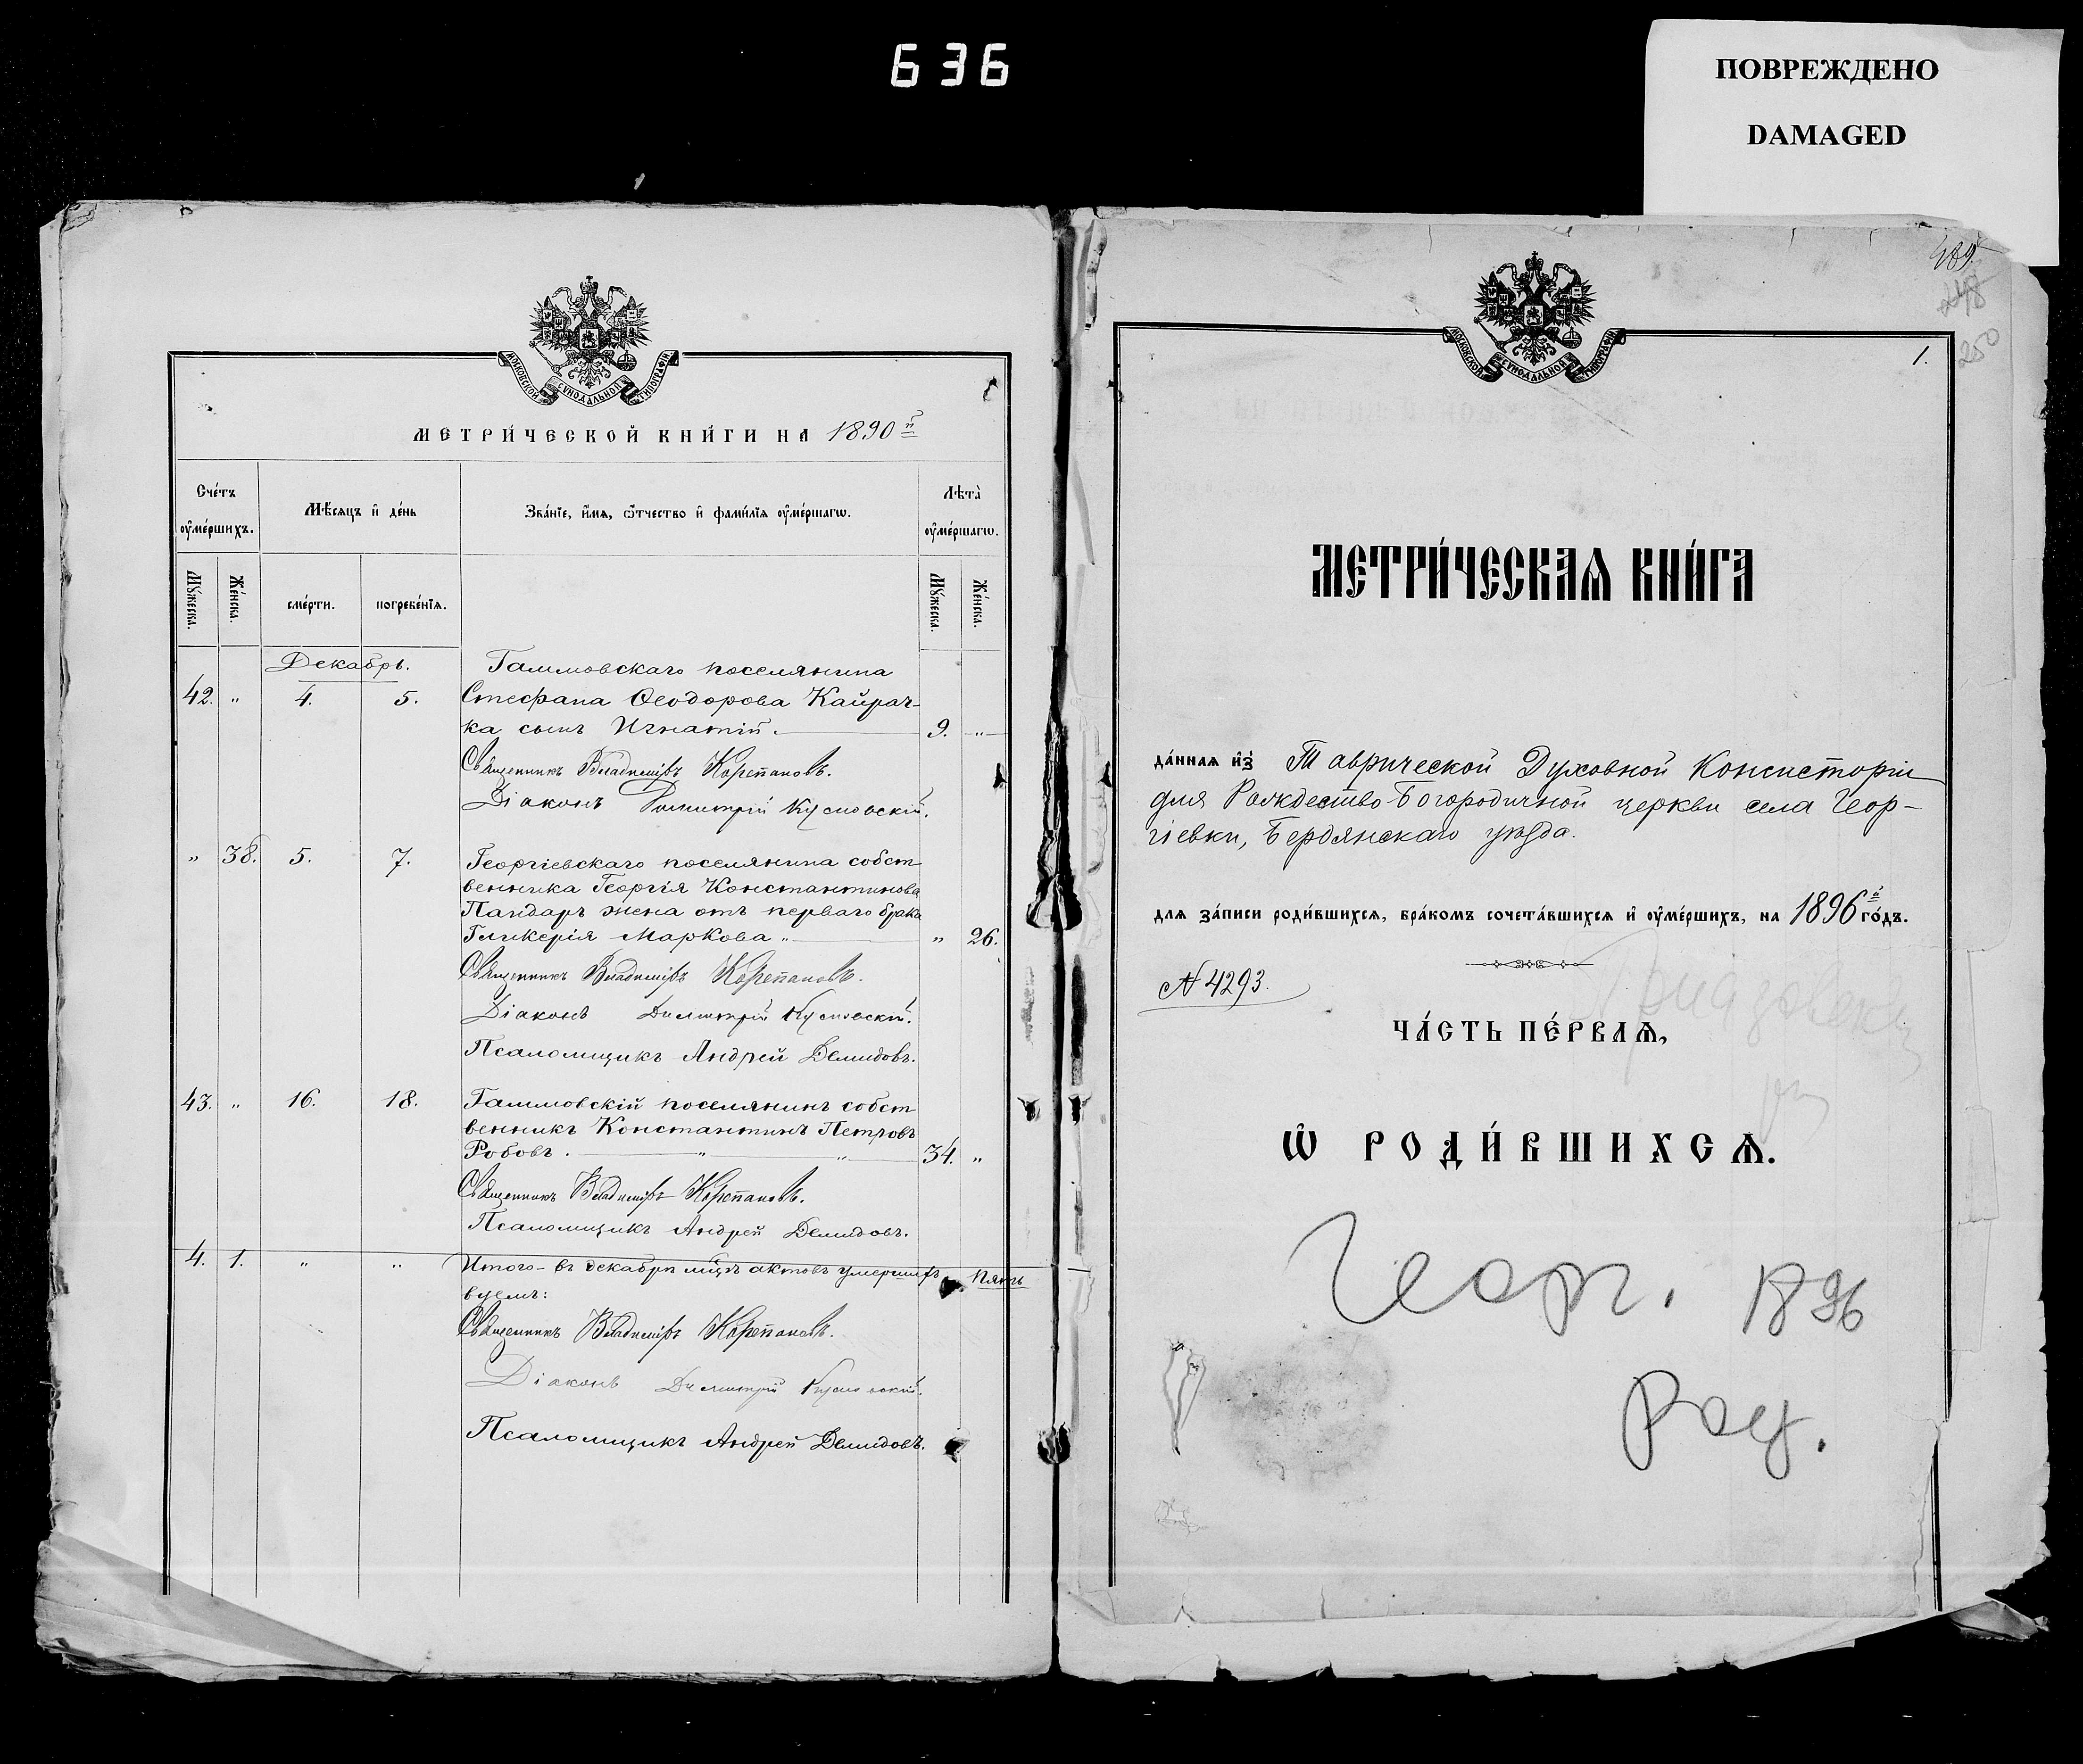 636
ПОВРЕЖДЕНО
DAMAGED
МОСКОВСКОЙ СѴНОДАЛЬНОЙ ТИПОГРАФІИ
МЕТРИ́ЧЕСКОЙ КНИ́ГИ НА 1890 й
Сче́тъ ᲂумє́ршихъ.
Мѣ́сяцъ и де́нь
Зва́нїе, и́мя, ѻ҆́тчество и фами́лїя ᲂуме́ршагѡ.
Лѣта̀ ᲂуме́ршагѡ.
Мꙋ́жеска.
Же́нска.
сме́рти.
погребе́нїя.
Мꙋ́жеска.
Же́нска.
Декабрь.
Гаммовскаго поселянина
42. " 4. 5. Стефана Ѳеодорова Кайрач-
ка сынъ Игнатій. 9. "
Священникъ Владиміръ Карепановъ.
Діаконъ Димитрій Кусмовскій.
" 38. 5. 7. Георгіевскаго поселянина собст
венника Георгія Константинова
Пандаръ жена отъ перваго брака
Гликерія Маркова " " 26.
Священникъ Владиміръ Карепановъ.
Діаконъ Димитрій Кусмовскій.
Псаломщикъ Андрей Демидовъ.
43. " 16. 18. Гаммовскій поселянинъ собст
венникъ Константинъ Петровъ
Робовъ. " " 34. "
Священникъ Владиміръ Карепановъ.
Псаломщикъ Андрей Демидовъ.
4. 1. " " Итого - въ декабрѣ мцѣ актовъ умершихъ пять
Священникъ Владиміръ Карепановъ.
Діаконъ Димитрій Кусмовскій.
Псаломщикъ Андрей Демидовъ.
489.
250
1.
МОСКОВСКОЙ СѴНОДАЛЬНОЙ ТИПОГРАФІИ
МЕТРИ́ЧЕСКАѦ КНИ́ГА
да́нная из̾ Таврической Духовной Консисторіи
для Рождество-Богородичной церкви села Геор-
гіевки, Бердянскаго уѣзда.
для за́писи роди́вшихся, бра́комъ сочета́вшихся и ᲂуме́ршихъ, на 1896 й го́дъ.
N 4293.
ЧА́СТЬ ПЕ́РВАѦ,
Ѡ РОДИ́ВШИХСѦ.
Геор. 1896
Род.